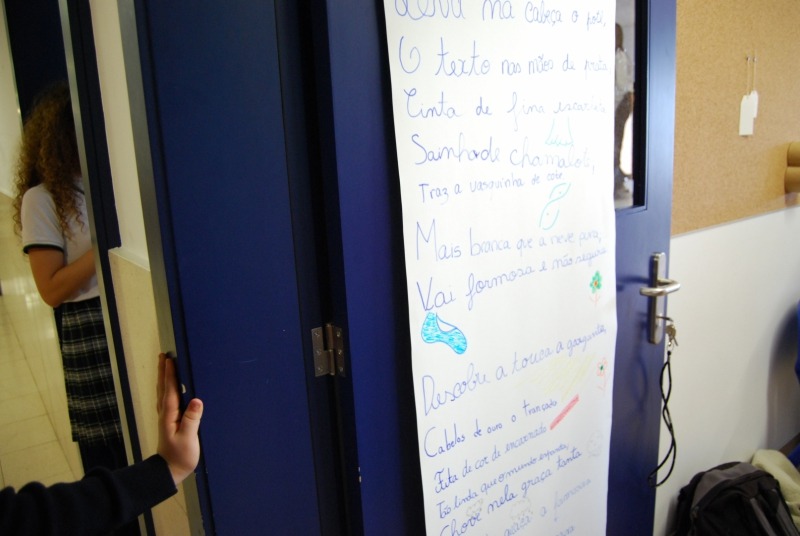 Leva na cabeça o pote,
O texto nas mãos de prata
Cinta de fina escarlata
Sainho de chamalote,
Traz a vasquinha de cote
Mais branca que a neve pura,
Vai formosa e não segura
Descobre a touca a garganta,
Cabelos de ouro o trançado
Fita de cor de encarnado
Tão linda que o mundo espanta,
Chove nela graça tanta
graça a formosura